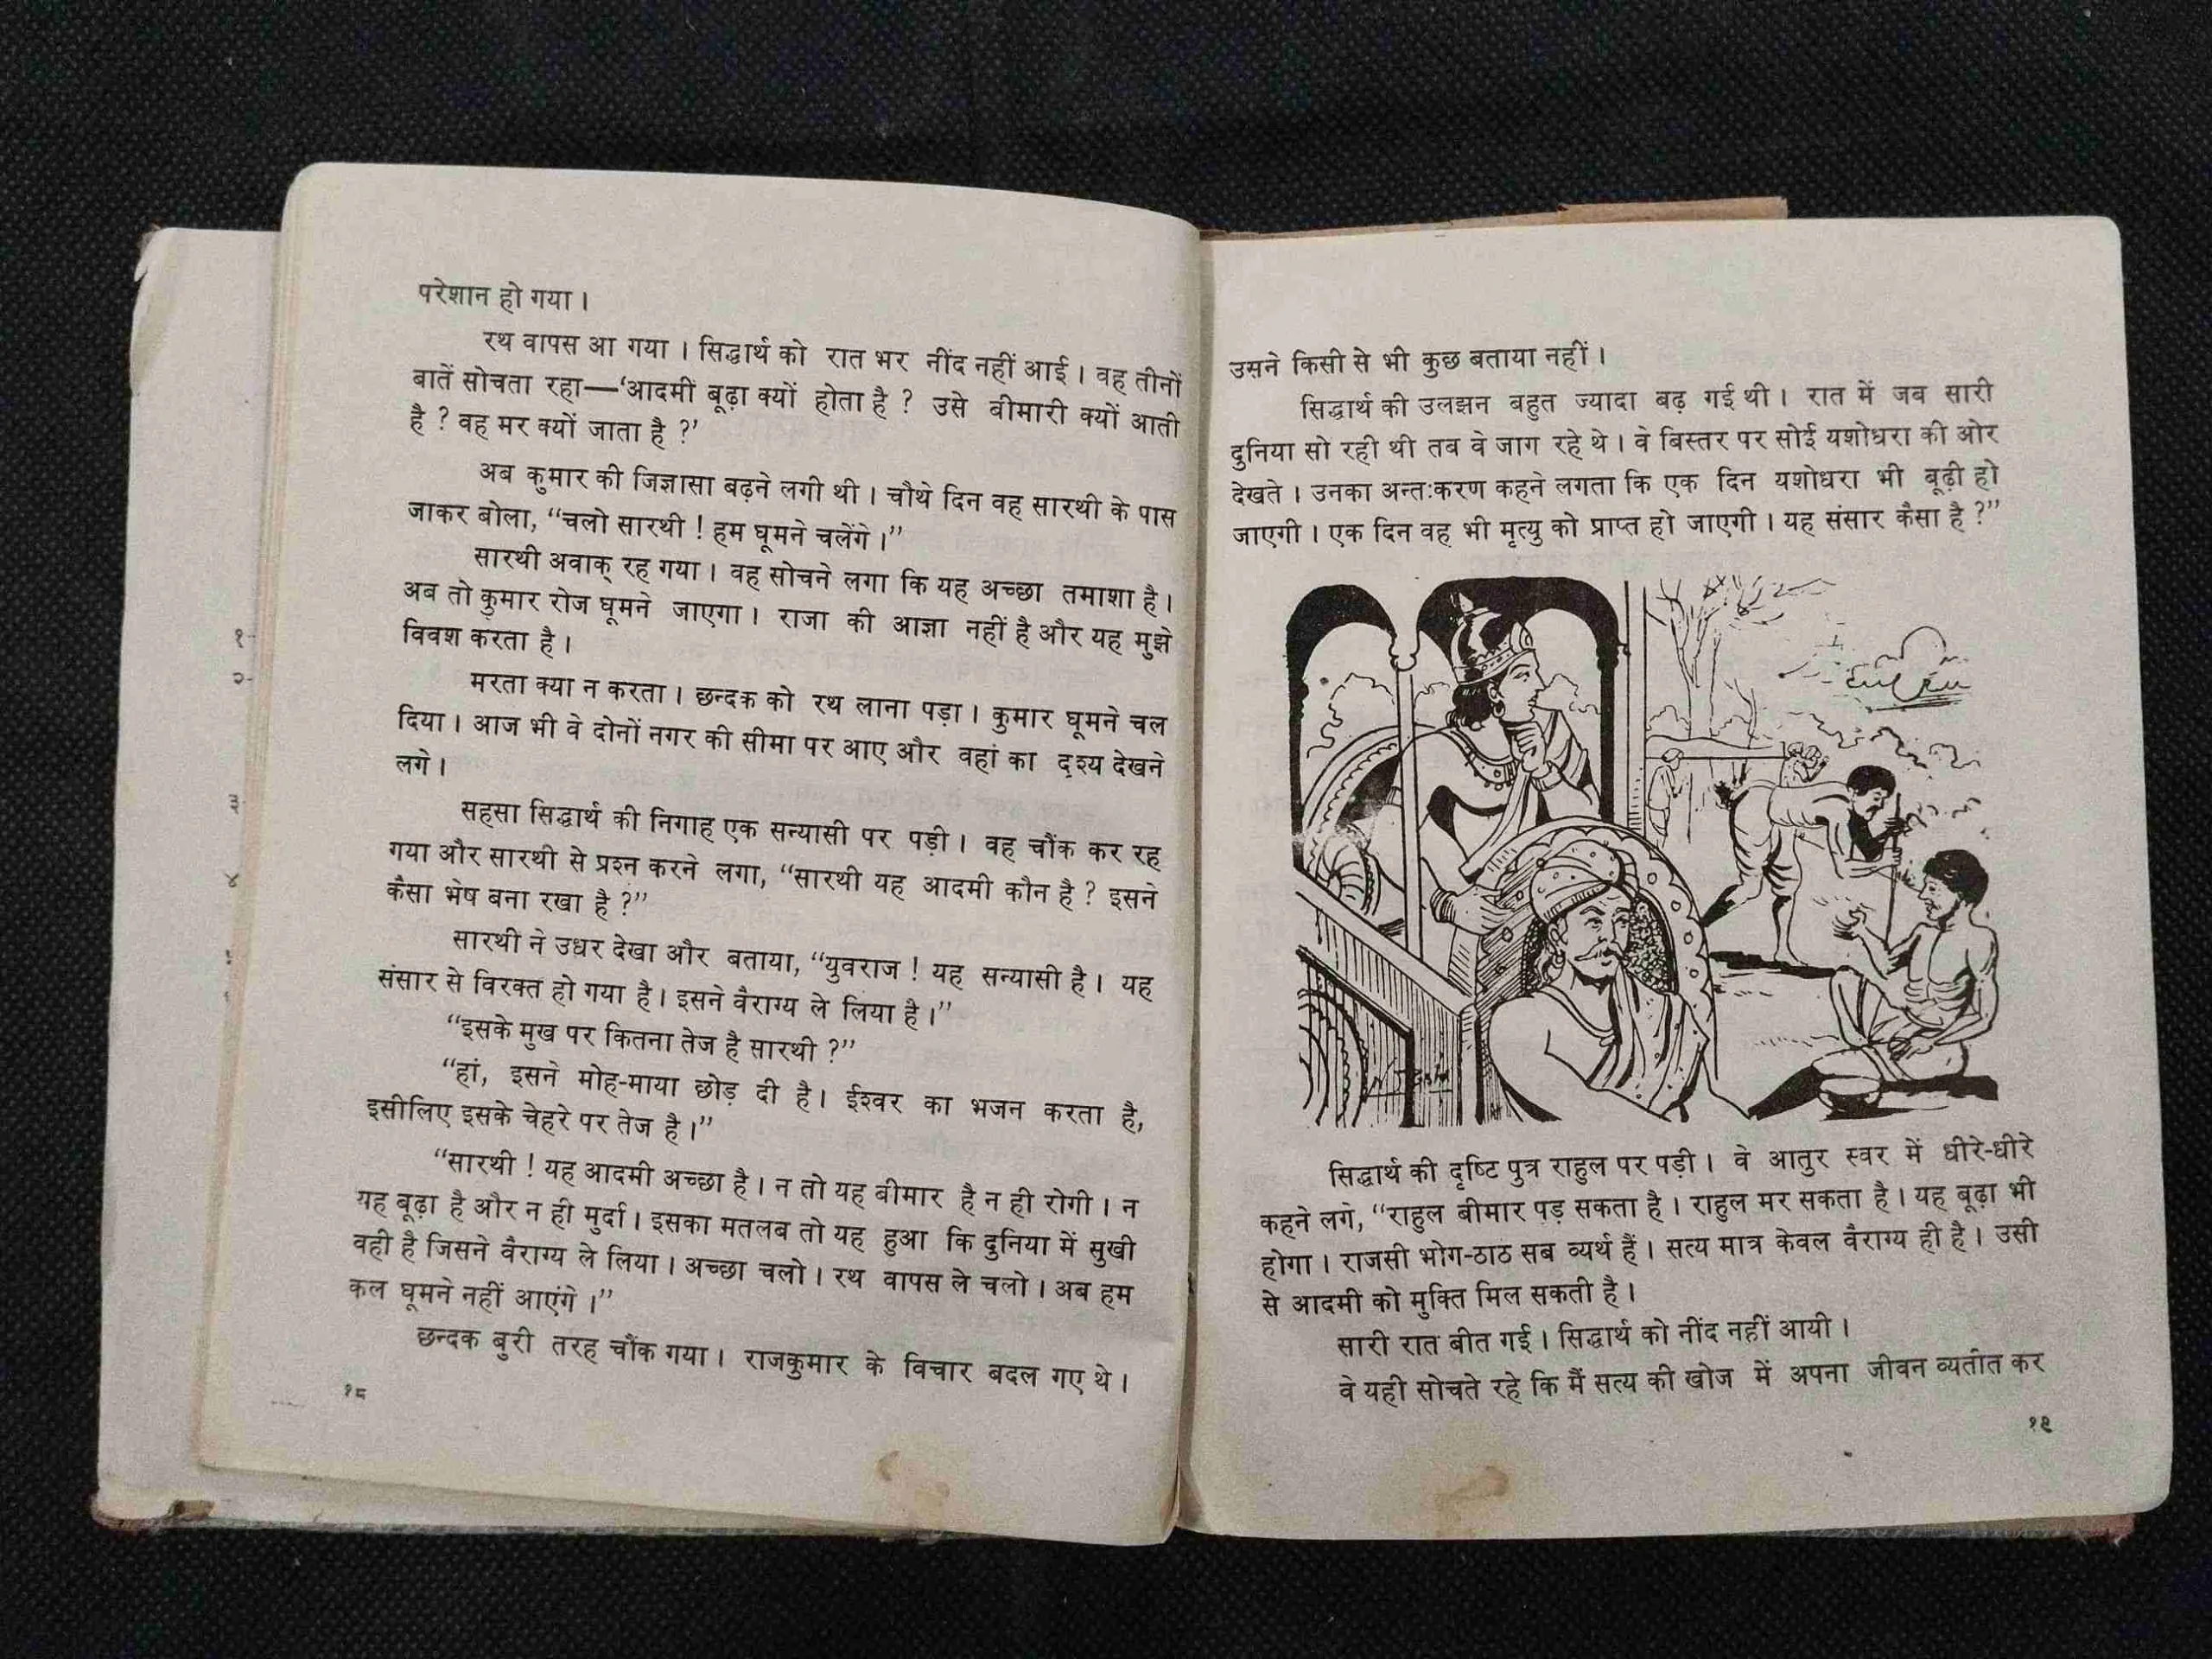 परेशान हो गया।
रथ वापस आ गया। सिद्धार्थ को रात भर नींद नहीं आई। वह तीनों
बातें सोचता रहा—‘आदमी बूढ़ा क्यों होता है ? उसे बीमारी क्यों आती
है ? वह मर क्यों जाता है ?’
अब कुमार की जिज्ञासा बढ़ने लगी थी। चौथे दिन वह सारथी के पास
जाकर बोला, “चलो सारथी ! हम घूमने चलेंगे।”
सारथी अवाक् रह गया। वह सोचने लगा कि यह अच्छा तमाशा है।
अब तो कुमार रोज घूमने जाएगा। राजा की आज्ञा नहीं है और यह मुझे
विवश करता है।
मरता क्या न करता। छन्दक को रथ लाना पड़ा। कुमार घूमने चल
दिया। आज भी वे दोनों नगर की सीमा पर आए और वहां का दृश्य देखने
लगे।
सहसा सिद्धार्थ की निगाह एक सन्यासी पर पड़ी। वह चौंक कर रह
गया और सारथी से प्रश्न करने लगा, “सारथी यह आदमी कौन है ? इसने
कैसा भेष बना रखा है ?”
सारथी ने उधर देखा और बताया, “युवराज ! यह सन्यासी है। यह
संसार से विरक्त हो गया है। इसने वैराग्य ले लिया है।”
“इसके मुख पर कितना तेज है सारथी ?”
“हां, इसने मोह-माया छोड़ दी है। ईश्वर का भजन करता है,
इसीलिए इसके चेहरे पर तेज है।”
“सारथी ! यह आदमी अच्छा है। न तो यह बीमार है न ही रोगी। न
यह बूढ़ा है और न ही मुर्दा। इसका मतलब तो यह हुआ कि दुनिया में सुखी
वही है जिसने वैराग्य ले लिया। अच्छा चलो। रथ वापस ले चलो। अब हम
कल घूमने नहीं आएंगे।”
छन्दक बुरी तरह चौंक गया। राजकुमार के विचार बदल गए थे।
१८
१-
२-
३
४
उसने किसी से भी कुछ बताया नहीं।
सिद्धार्थ की उलझन बहुत ज्यादा बढ़ गई थी। रात में जब सारी
दुनिया सो रही थी तब वे जाग रहे थे। वे बिस्तर पर सोई यशोधरा की ओर
देखते। उनका अन्तःकरण कहने लगता कि एक दिन यशोधरा भी बूढ़ी हो
जाएगी। एक दिन वह भी मृत्यु को प्राप्त हो जाएगी। यह संसार कैसा है ?”
सिद्धार्थ की दृष्टि पुत्र राहुल पर पड़ी। वे आतुर स्वर में धीरे-धीरे
कहने लगे, “राहुल बीमार पड़ सकता है। राहुल मर सकता है। यह बूढ़ा भी
होगा। राजसी भोग-ठाठ सब व्यर्थ हैं। सत्य मात्र केवल वैराग्य ही है। उसी
से आदमी को मुक्ति मिल सकती है।
सारी रात बीत गई। सिद्धार्थ को नींद नहीं आयी।
वे यही सोचते रहे कि मैं सत्य की खोज में अपना जीवन व्यतीत कर
१९